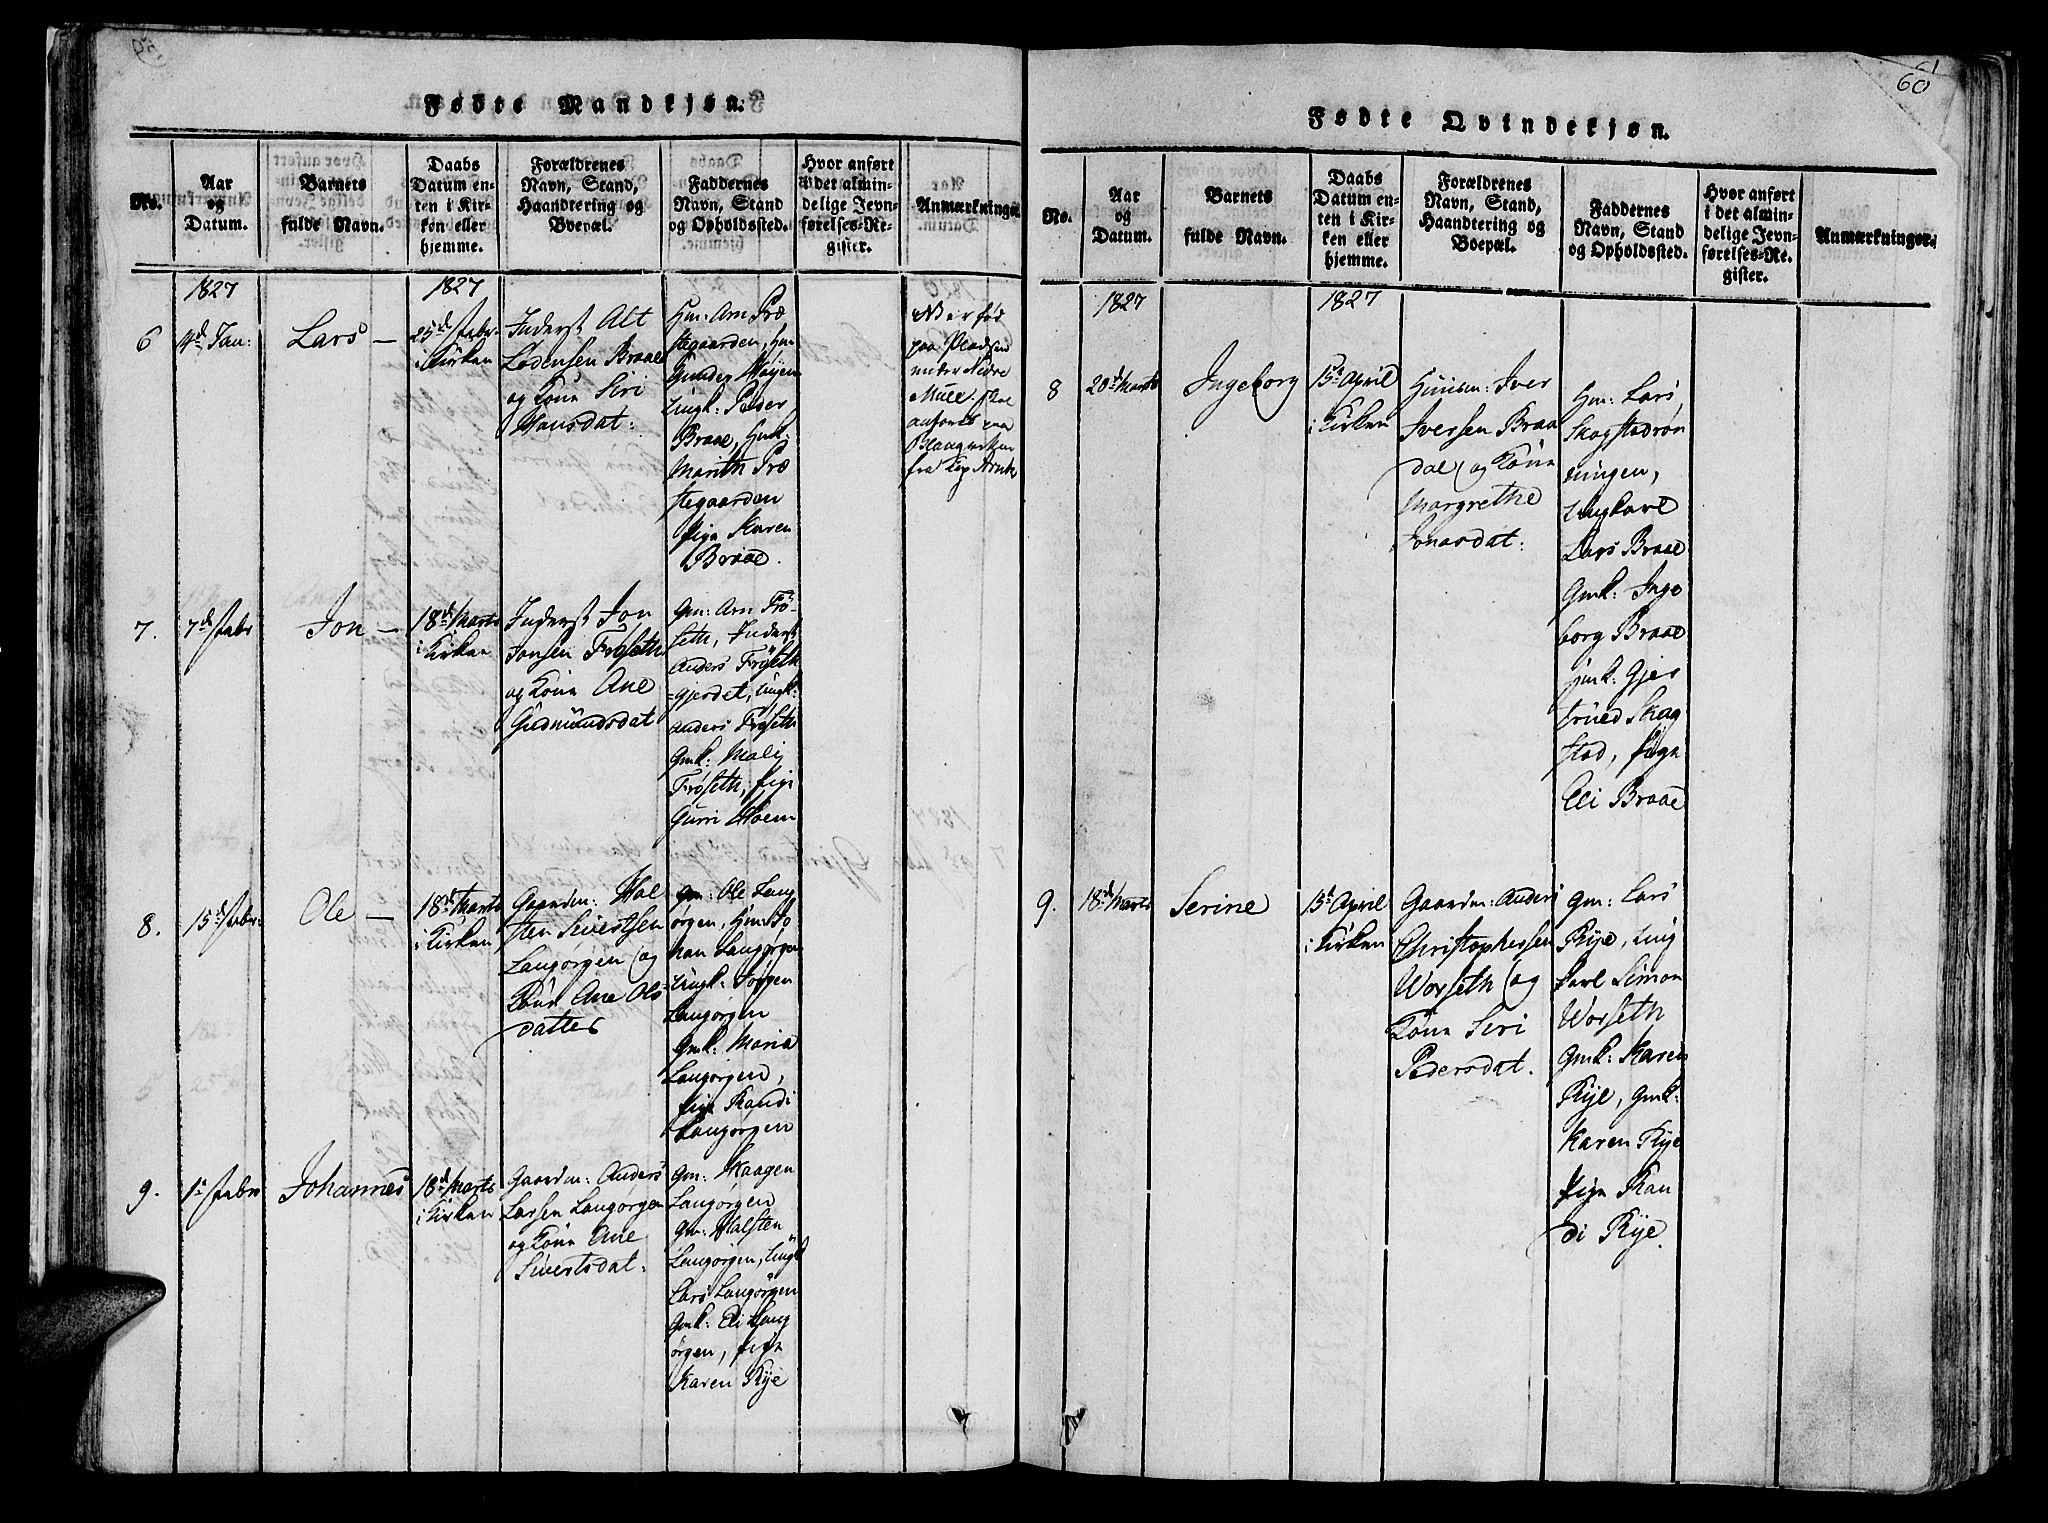 59
Fødte Mandkjøn.
No.
Aar
og
Datum.
Barnets
fulde Navn.
Daabs
Datum en-
ten i Kir-
ken eller
hjemme.
Forældrenes
Navn, Stand,
Haandtering og
Boepæl.
Faddernes
Navn, Stand
og Opholdssted.
Hvor anført
i det almin-
delige Jevn-
førelses-Re-
gister.
Anmærkninger
1827
1827
6
4d Jan:
Lars
25d Febr
i Kirken
Inderst Alt
Lodensen Braae
og Kone Siri
Hansdat:
Gm: Arn Præ
stegaarden, Hm
Gunder Mojem
Ungk: Peder
Braae, Hmk:
Marith Præ
stegaarden
Pige Karen
Braae.
N er fød
paa Pladsen
under Nedre
Mule. skal
anføres paa
fra
7.
7d Febr
Jon
18d Marts
i Kirken
Inderst Jon
Jonsen Frøseth
og Kone Ane
Gudmundsdat
Gm: Arn Frø-
seth, Inderst
Anders Frøseth
=gjerdet, Ungk:
Anders Frøseth
Gmk: Mali
Frøseth, Pige
Gurri Moem
8.
15d Febr:
Ole
18d Marts
i Kirken
Gaardm: Hal
sten Sivertsen
Langørgen og
Kone Ane Ols
datter
Gm: Ole Lang
ørgen, Hm: Jo
han Langørgen
Ungk: Jørgen
Langørgen
Gmk: Maria
Langørgen,
Pige Randi
Langørgen
9.
1d Febr
Johannes
18d Marts
i Kirken
Gaardm: Anders
Larsen Langørgen
og Kone Ane
Sivertsdat:
Gm: Haagen
Langørgen
Gm: Halsten
Langørgen, Ungk
Lars Langørgen
Gmk: Eli Lang
ørgen, Pige
Karen Rye
60
Fødte Qvindekjøn.
No.
Aar
og
Datum.
Barnets
fulde Navn.
Daabs
Datum en-
ten i Kir-
ken eller
hjemme.
Forældrenes
Navn, Stand,
Haandtering og
Boepæl.
Faddernes
Navn, Stand
og Opholdssted.
Hvor anført
i det almin-
delige Jevn-
førelses-Re-
gister.
Anmærkninger.
1827
1827
8
20d Marts
Ingeborg
15d April
i Kirken
Huusm: Iver
Iversen Braa
dal og Kone
Margrethe
Jonasdat:
Hm: Lars
Skogstadrøn
ningen,
Ungkarl
Lars Braae
Gmk: Inge
borg Braae
Hmk: Gjer
trued Skog
stad, Pige
Eli Braae
9.
18d Marts
Serine
15d April
i Kirken
Gaardm: Anders
Christophersen
Worseth og
Kone Seri
Pedersdat.
Gm: Lars
Rye, Ung
karl Simon
Worseth
Gmk: Karen
Rye, Gmk:
Karen Rye
Pige Ran
di Rye.